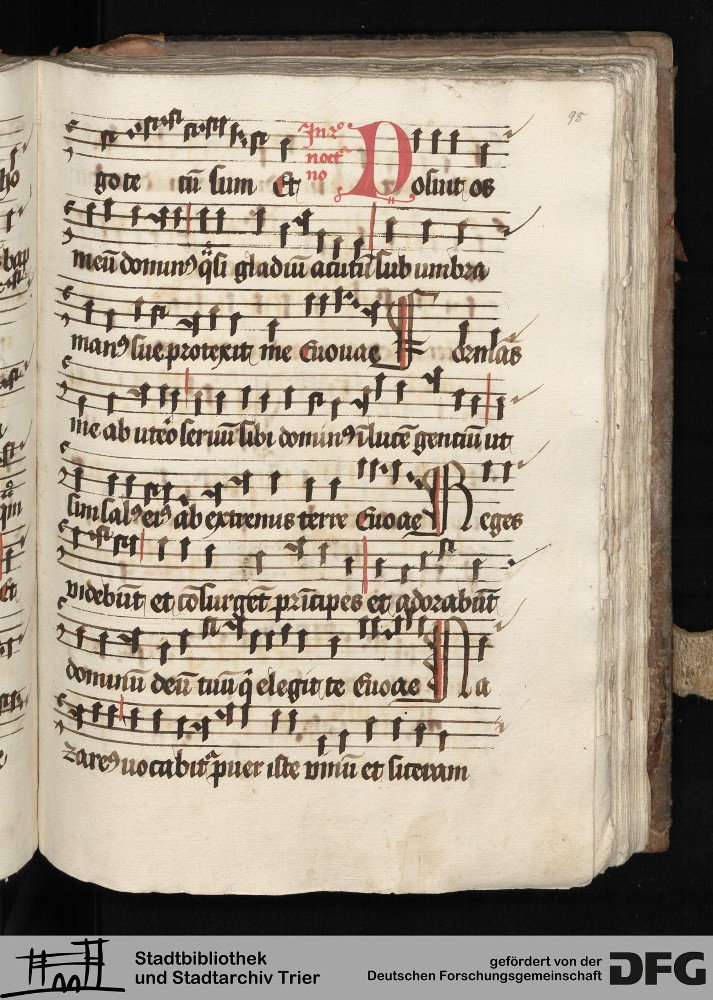 98
gote tu sum Et In 2º noct no Posuit os
meū domin⁹ q̈si gladiū acutū sub umbra
man⁹ sue protexit me Euouae Formās
me ab utero seruū sibi domin⁹ ī lucē gentiū ut
sim sal⁹ ei⁹ ab extremis terre Euoae Reges
videbūt et cōsurgēt prīcipes et adorabūt
dominū deū tuū q̄ elegit te Euoae Na
zare⁹ uocabit᷑ puer iste vinū et siceram
Stadtbibliothek
und Stadtarchiv Trier
gefördert von der
Deutschen Forschungsgemeinschaft
DFG